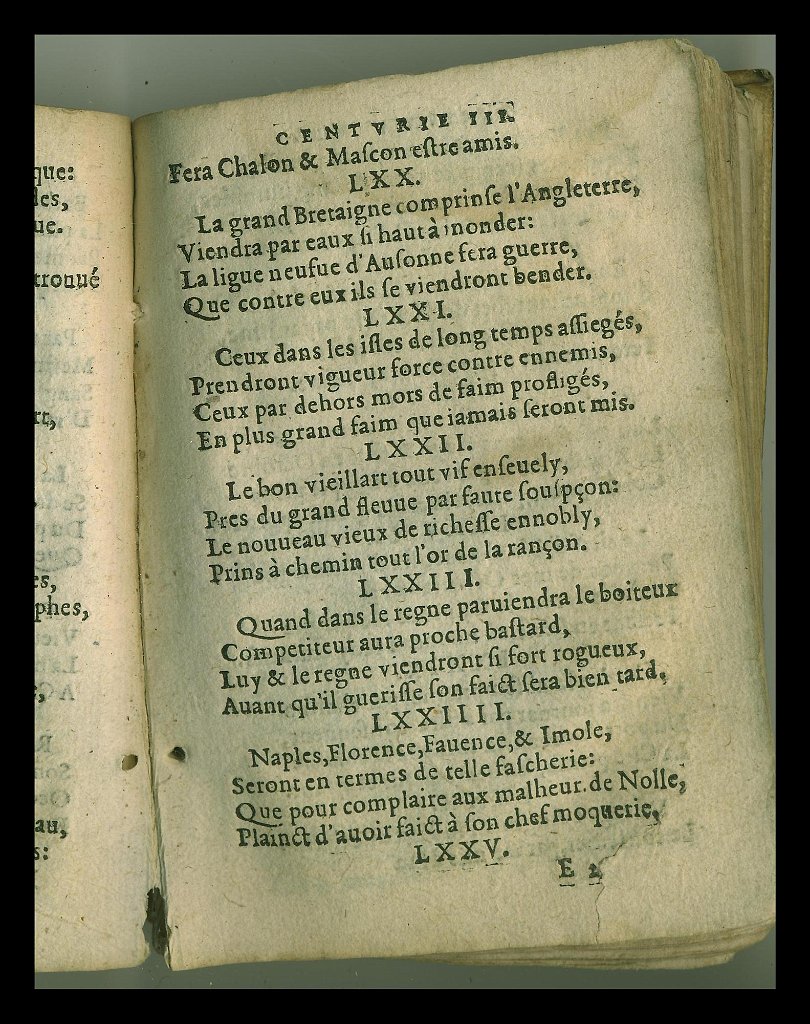 que:
les,
ue.
trouué
rt,
es,
phes,
au,
s:
CENTVRIE III.
Fera Chalon & Maſcon eſtre amis.
LXX.
La grand Bretaigne comprinſe l'Angleterre,
Viendra par eaux ſi haut à inonder:
La ligue neufue d'Auſonne fera guerre,
Que contre eux ils ſe viendront bender.
LXXI.
Ceux dans les iſles de long temps aſſiegés,
Prendront vigueur force contre ennemis,
Ceux par dehors mors de faim profligés,
En plus grand faim que iamais ſeront mis.
LXXII.
Le bon vieillart tout vif enſeuely,
Pres du grand fleuue par faute ſouſpçon:
Le nouueau vieux de richeſſe ennobly,
Prins à chemin tout l'or de la rançon.
LXXIII.
Quand dans le regne paruiendra le boiteux
Competiteur aura proche baſtard,
Luy & le regne viendront ſi fort rogueux,
Auant qu'il gueriſſe ſon faict ſera bien tard,
LXXIIII.
Naples,Florence,Fauence,& Imole,
Seront en termes de telle faſcherie:
Que pour complaire aux malheur.de Nolle,
Plainct d'auoir faict à ſon chef moquerie,
LXXV.
E 2